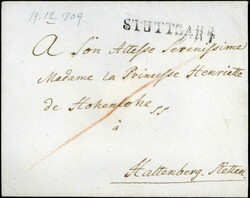 19.12.1809.
STUTTGART
A Son Altesse Serenissime
Madame la Princesse Henriette
de Hohenlohe
à
Haltenberg. Stetten